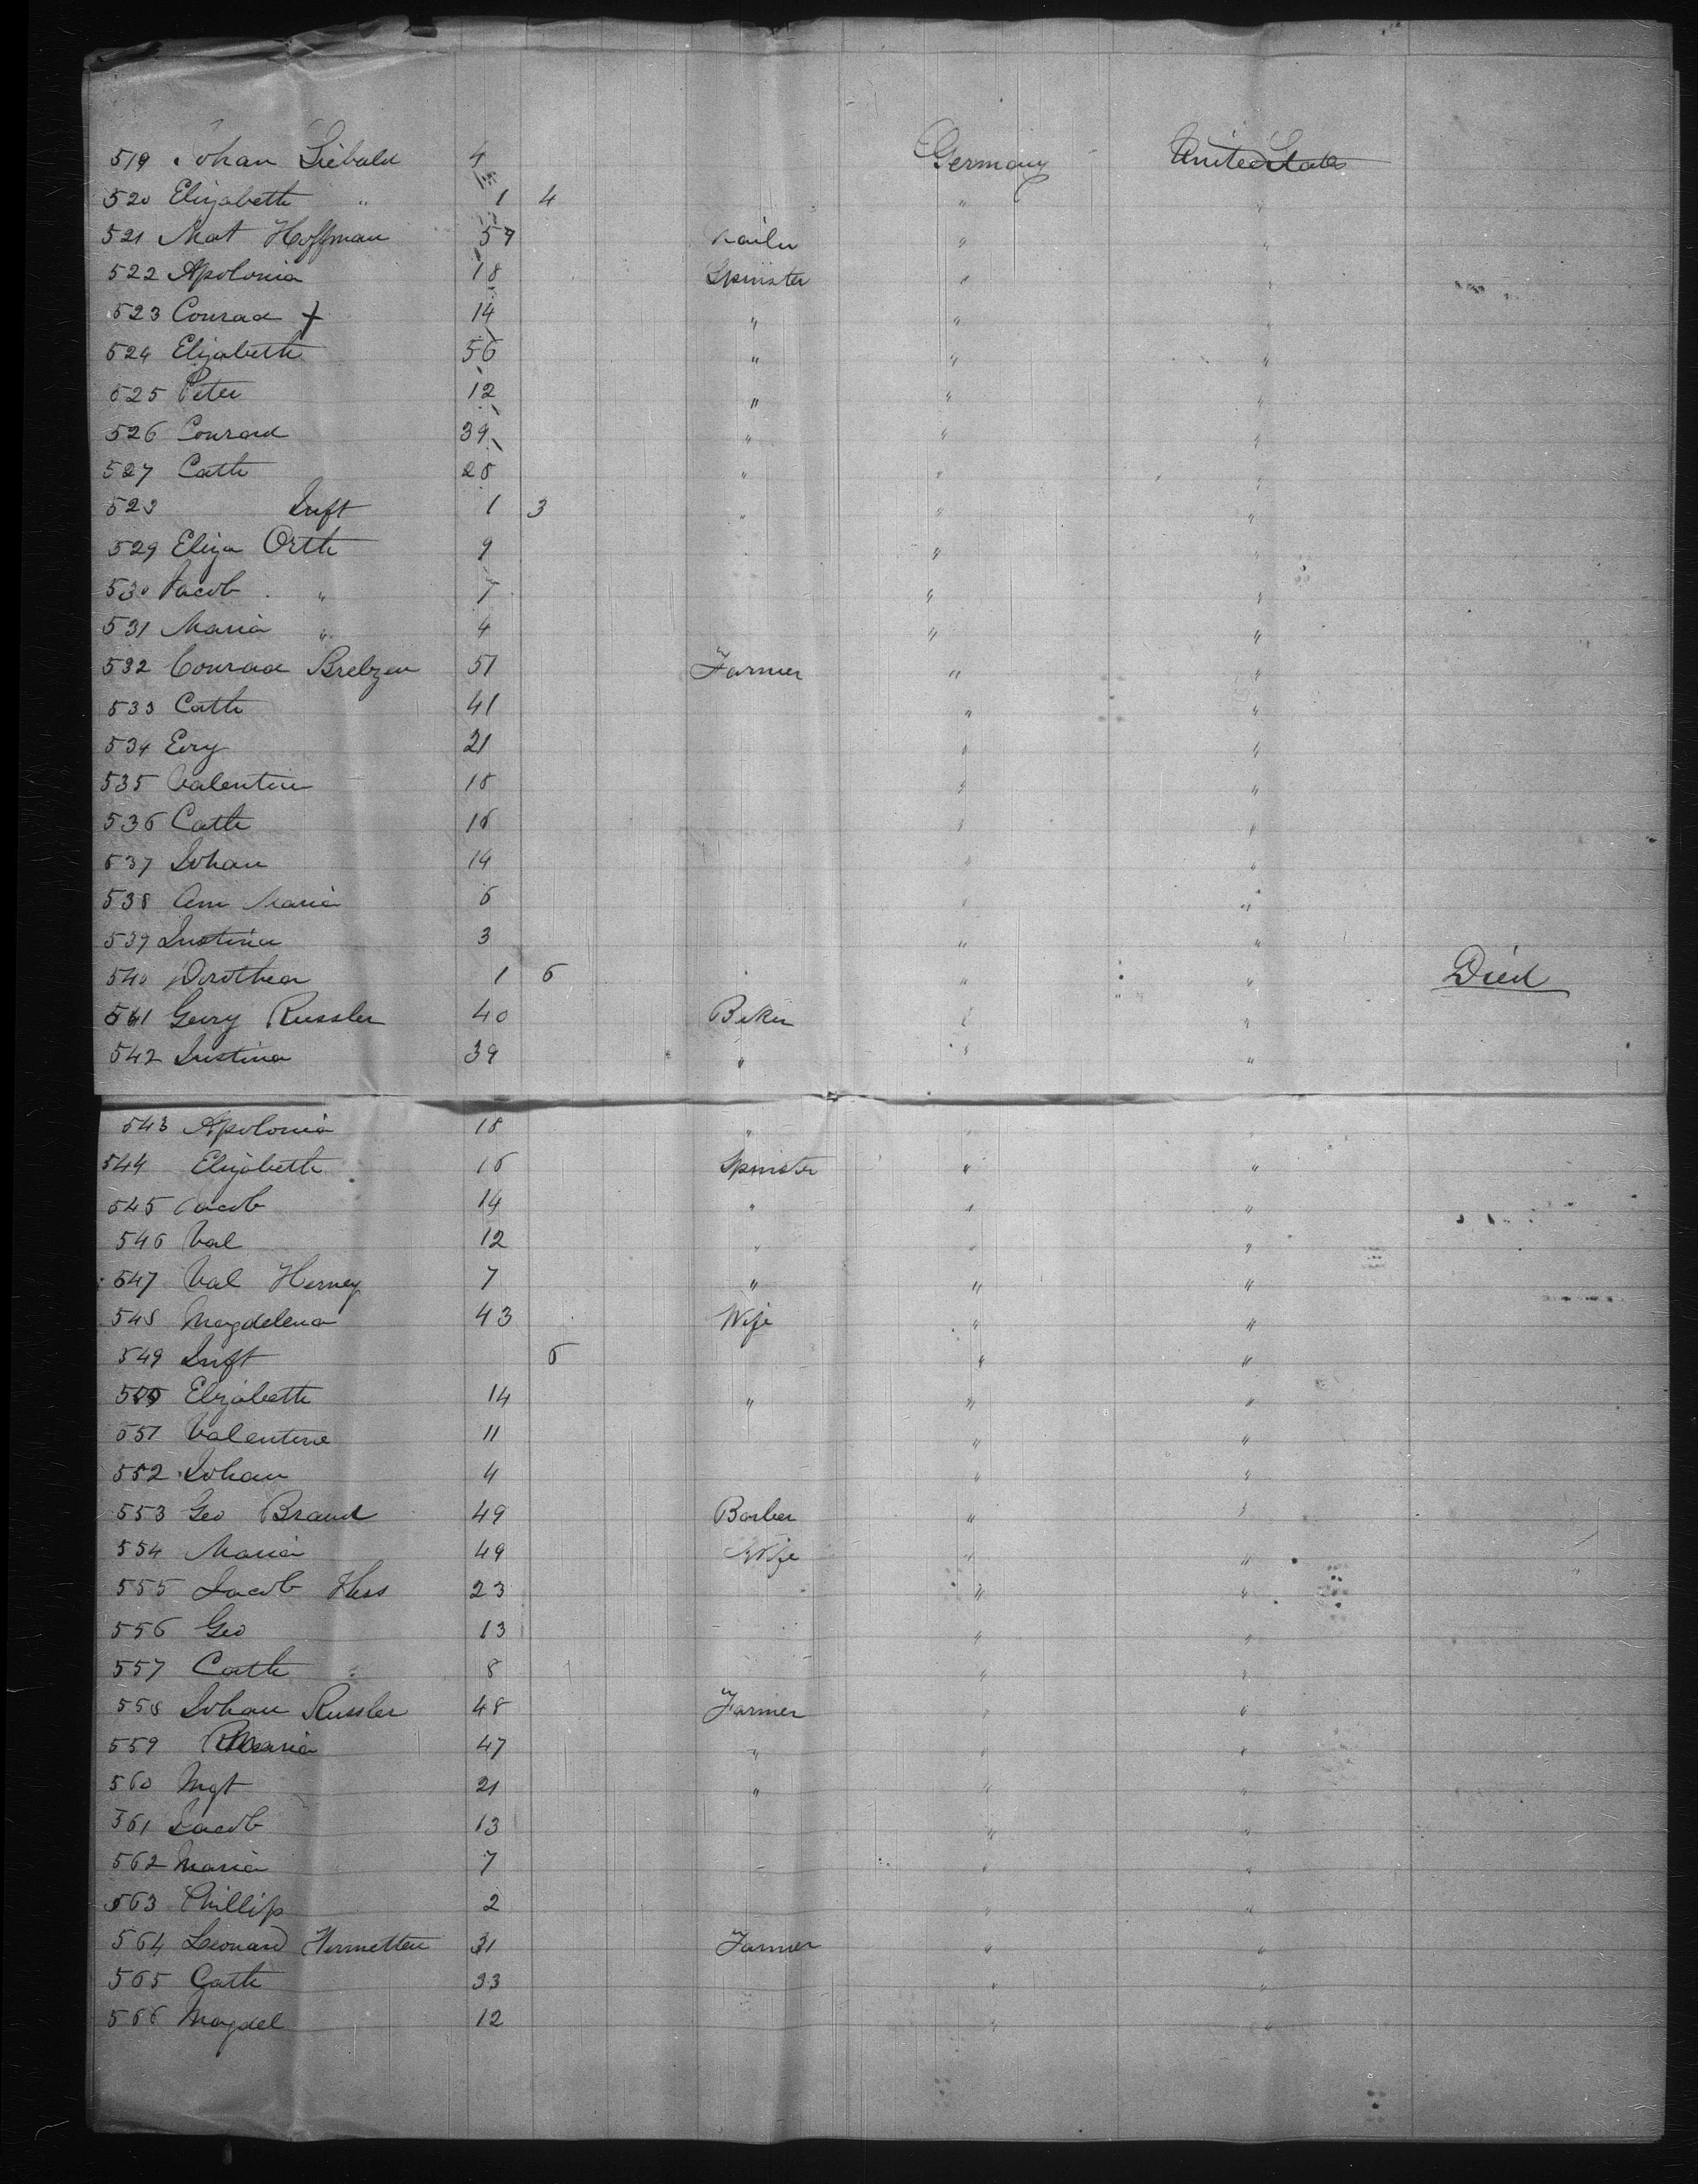 519 Johan Siebald 4 Germany United States
520 Elizabeth " 1 4 " "
521 Mat Hoffman 57 " "
522 Apolonia 18 Spinster " "
523 Conrad + 14 " " "
524 Elizabeth 56 " " "
525 Peter 12 " " "
526 Conrad 39 " " "
527 Cath 28 " " "
528 Inft 1 3 " " "
529 Eliza Orth 9 " "
530 Jacob " 7 " "
531 Maria " 4 " "
532 Conrad Brebzen 51 Farmer " "
533 Cath 41 " "
534 Evy 21 " "
535 Valentin 18 " "
536 Cath 16 " "
537 Johan 14 " "
538 Ann Maria 6 " "
539 Justina 3 " "
540 Dorothea 1 6 " " Died
541 Georg Russler 40 Beker " "
542 Justina 39 " " "
543 Apolonia 18 "
544 Elizabeth 16 Spinster " "
545 Jacob 14 " " "
546 Val 12 " " "
547 Val Herney 7 " " "
548 Magdelena 43 Wife " "
549 Inft 6 " "
550 Elizabeth 14 " " "
551 Valentine 11 " "
552 Johan 4 " "
553 Geo Brand 49 Barber " "
554 Maria 49 Wife " "
555 Jacob Hess 23 " "
556 Geo 13 " "
557 Cath " 8 " "
558 Johan Russler 48 Farmer " "
559 Maria 47 " " "
560 Mgt 21 " " "
561 Jacob 13 " "
562 Maria 7 " "
563 Phillip 2 " "
564 Leonard Hermetten 31 Farmer " "
565 Cath 33 " "
566 Magdel 12 " "